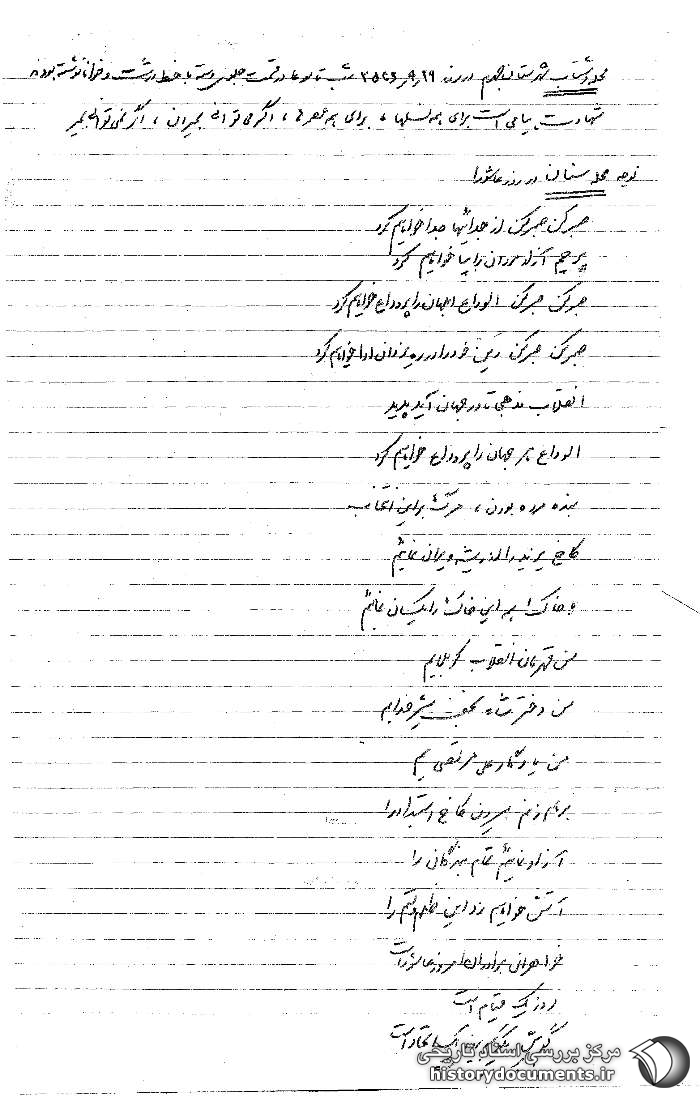 محله دشتاب شهرستان جهرم در روز 19/9/2536 شب تاسوعا در قسمت جلوی دسته با خط درشت و خوانا نوشته بودند
شهادت پیامی است برای همه نسلها ، برای همه عصرها ، اگر می توانی بمیران ، اگر نمی توانی بمیر
نوحه محله سنان در روز عاشورا
صبر کن صبر کن از جدائیها صدا خواهیم کرد
پرچم آزاد مردان را بپا خواهیم کرد
صبر کن صبر کن الوداع جهان را پر وداع خواهیم کرد
صبر کن صبر کن دین خود را در ره یزدان ادا خواهیم کرد
انقلاب مذهبی تا در جهان آید پدید
الوداع هر جهان را پر وداع خواهیم کرد
بنده مرده بودن ، مرگ بر این انتخاب
کاخ یزید را از ریشه ویران نمائیم
و خاک با این خاک را یکسان نمائیم
من قهرمان انقلاب کربلایم
من دختر شاه نجف شیر خدایم
من یادگار علی مرتضی یم
برهم زنم بیرون کاخ استبداد را
آزاد نمائیم تمام بندگان را
آتش خواهیم زد این ظلم و ستم را
خواهران برادران امروز عاشوراست
روز یک قیام است
مرکز بررسی اسناد تاریخی
historydocuments.ir